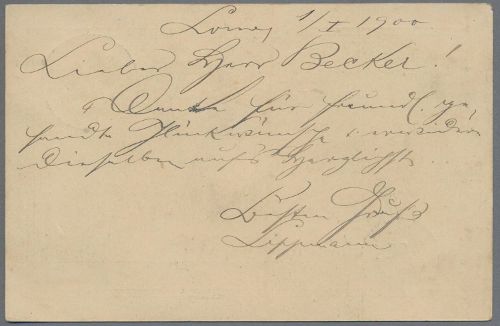 Lome, 1/I 1900.
Lieber Herr Becker!
Danke für freundl. ge-
sandte Glückwünsche u. erwidere
dieselben aufs Herzlichste.
Besten Gruß
Lippmann